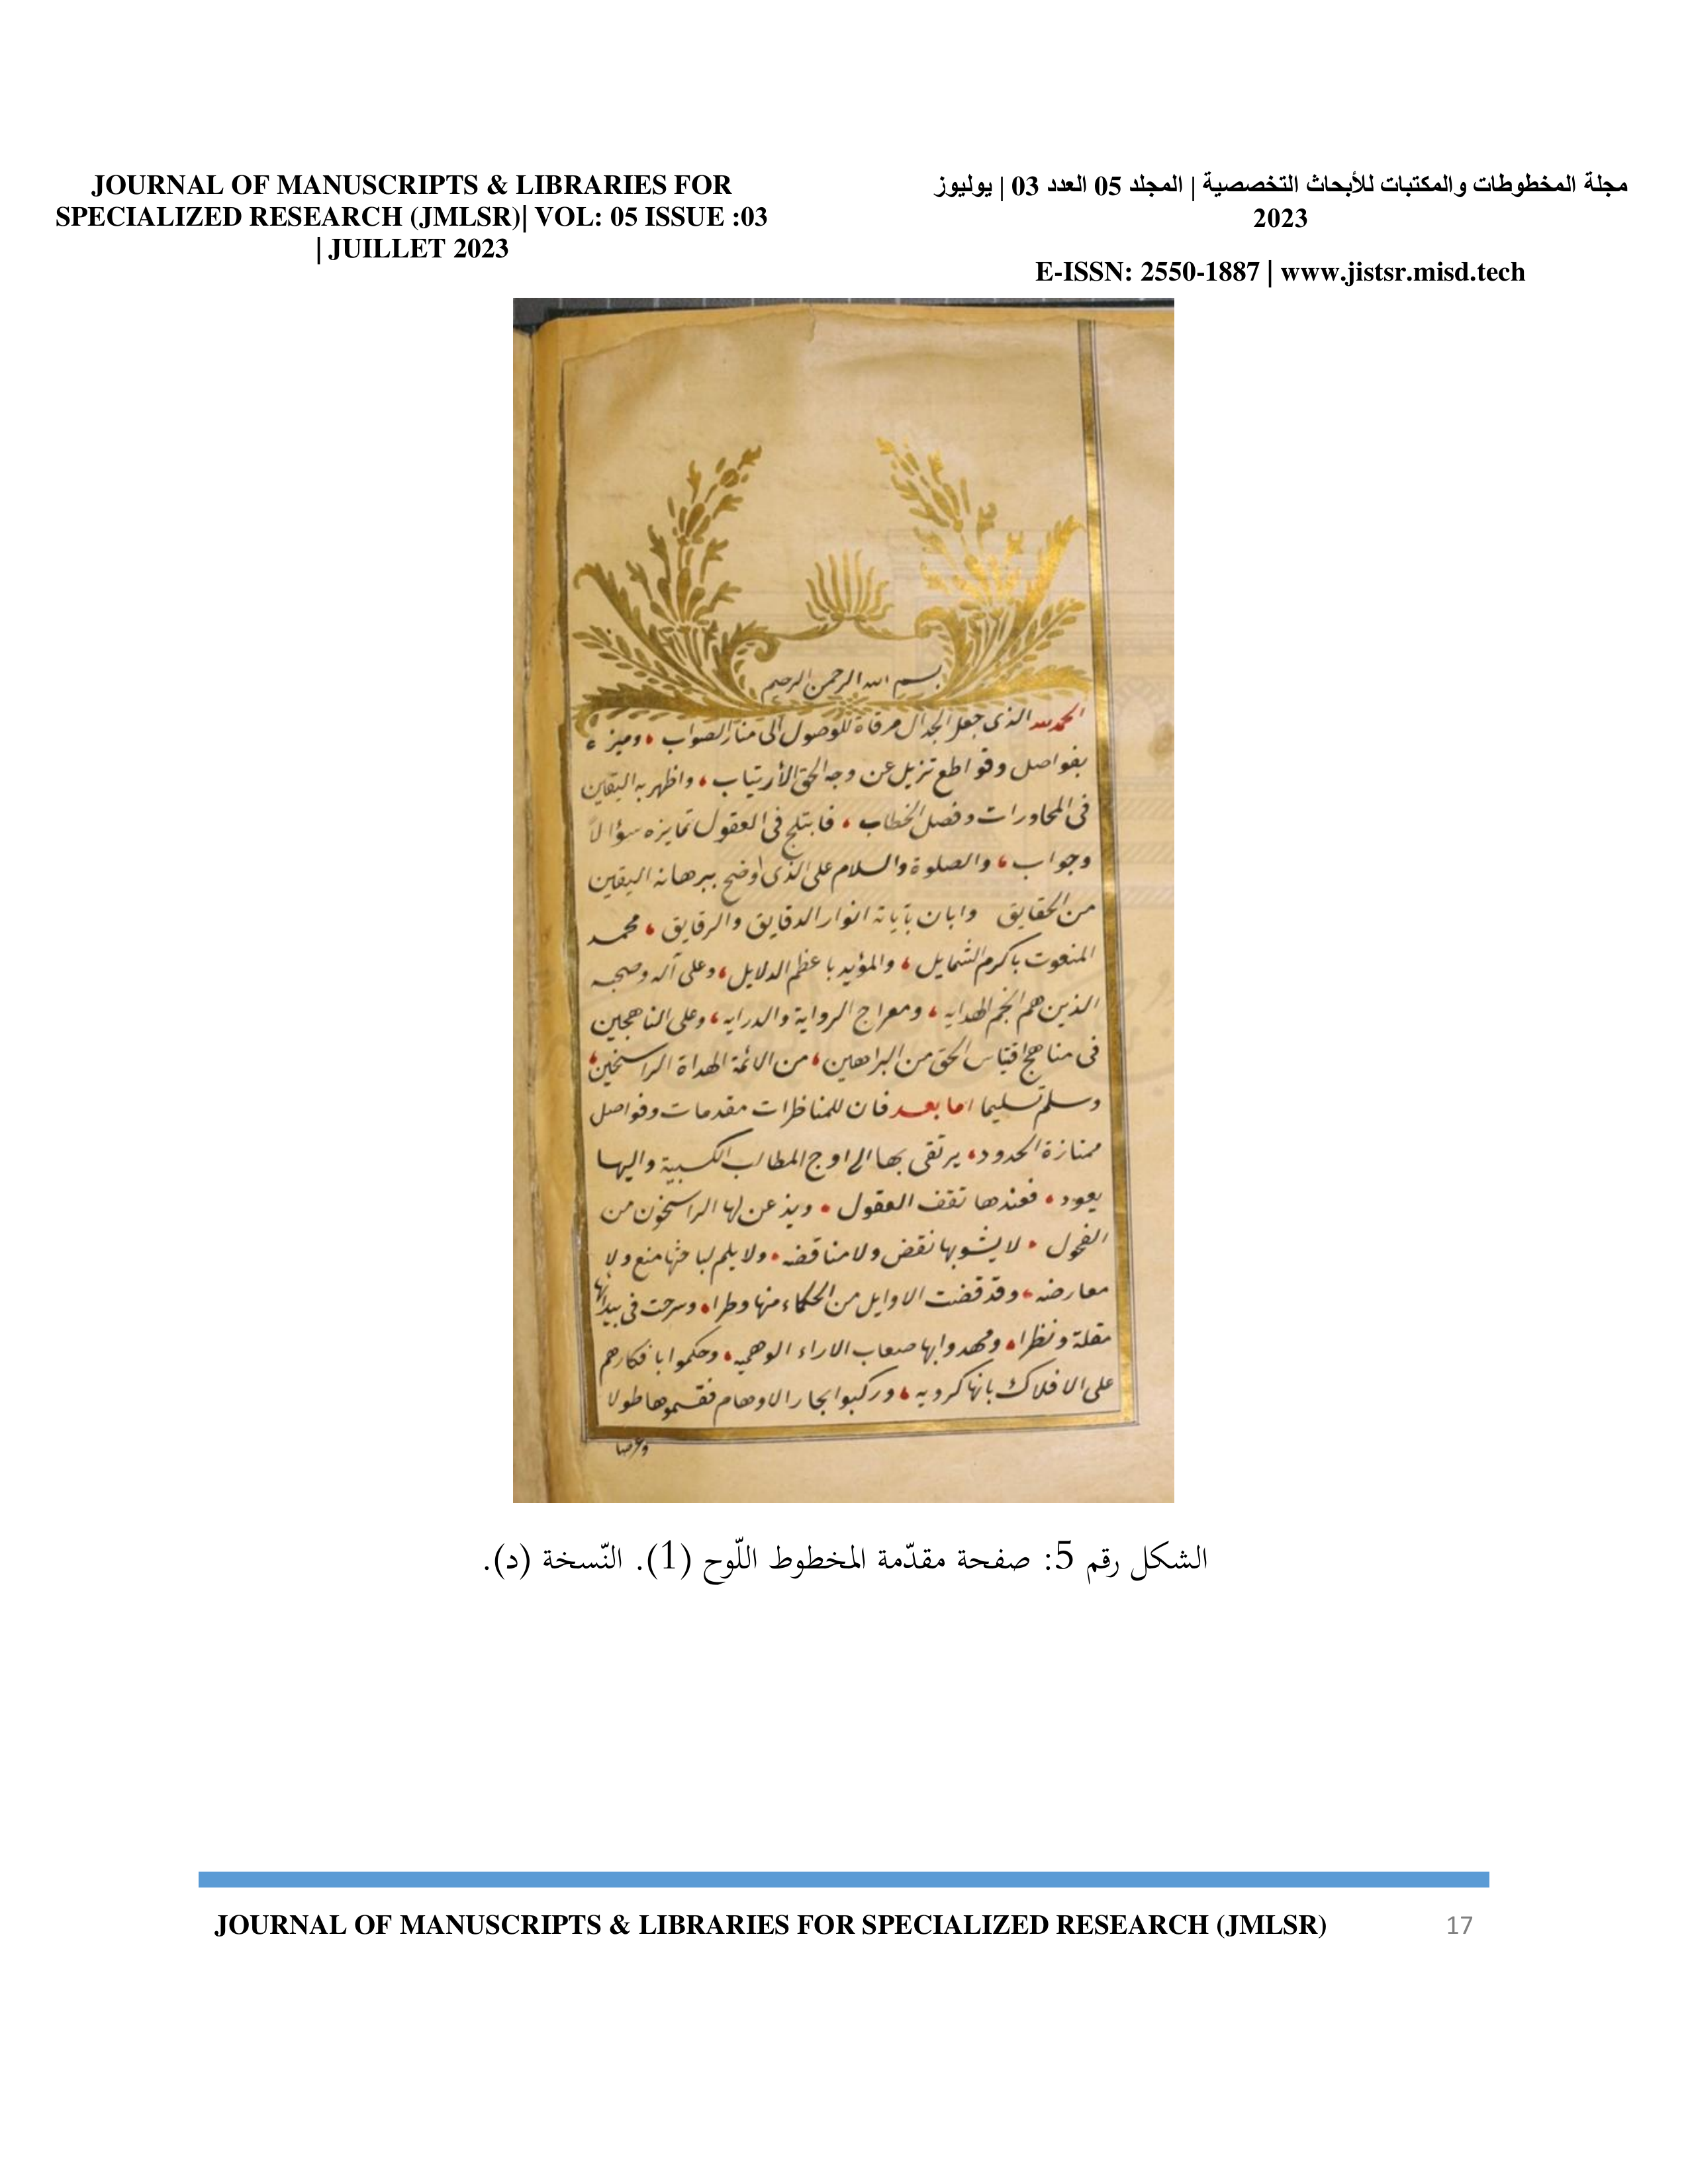 JOURNAL OF MANUSCRIPTS & LIBRARIES FOR
SPECIALIZED RESEARCH (JMLSR)| VOL: 05 ISSUE :03
| JUILLET 2023
مجلة المخطوطات والمكتبات للأبحاث التخصصية | المجلد 05 العدد 03 | يوليوز
2023
E-ISSN: 2550-1887 | www.jistsr.misd.tech
بسم الله الرحمن الرحيم
الحمد لله الذى جعل الجدال مرقاة للوصول الى منار الصواب وميزه
بفواصل وقواطع تزيل عن وجه الحق الأرتياب واظهر به اليقين
فى المحاورات وفصل الخطاب فابتلج فى العقول تمايزه سؤالاً
وجواب والصلوة والسلام على الذى اوضح ببرهانه اليقين
من الحقايق وابان بآياته انوار الدقايق والرقايق محمد
المنعوت باكرم الشمايل والمؤيد باعظم الدلايل وعلى آله وصحبه
الذين هم انجم الهدايه ومعراج الرواية والدرايه وعلى الناهجين
فى مناهج اقتباس الحق من البراهين من الائمة الهداة الراسخين
وسلم تسليما اما بعد فان للمناظرات مقدمات وفواصل
ممتازة الحدود يرتقى بها الى اوج المطالب الكسبية واليها
يعود فعندها تقف العقول ويذعن لها الراسخون من
الفحول لا يشوبها نقض ولا مناقضه ولا يلم لباحثها منع ولا
معارضه وقد قضت الاوايل من الحكماء منها وطرا وسرحت فى بيدائها
مقلة ونظرا ومهدوا بها صعاب الاراء الوهميه وحكموا بافكارهم
على الافلاك بانها كرويه وركبوا بحار الاوهام فقسموها طولا
وعرضا
الشكل رقم 5: صفحة مقدّمة المخطوط اللّوح (1). النّسخة (د).
JOURNAL OF MANUSCRIPTS & LIBRARIES FOR SPECIALIZED RESEARCH (JMLSR) 17